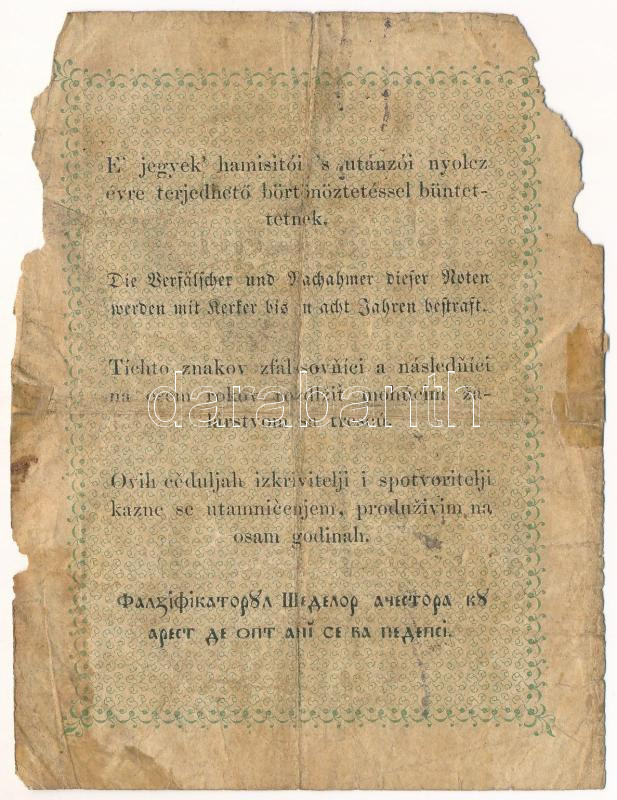 E' jegyek' hamisitói 's utánzói nyolcz
évre terjedhető börtönöztetéssel büntet-
tetnek.
Die Verfälscher und Nachahmer dieser Noten
werden mit Kerker bis zu acht Jahren bestraft.
Tíchto znakov zfalšovňíci a následňíci
na osem rokov rozdlžiť mohúcim ža-
lárstvom sa trescú.
darabanth
Ovih cěduljah izkrivitelji i spotvoritelji
kazne se utamničenjem, produživim na
osam godinah.
Фалзіфікаторꙋл Шеделор ачестора кꙋ
арест де опт ані се ва педепсі.